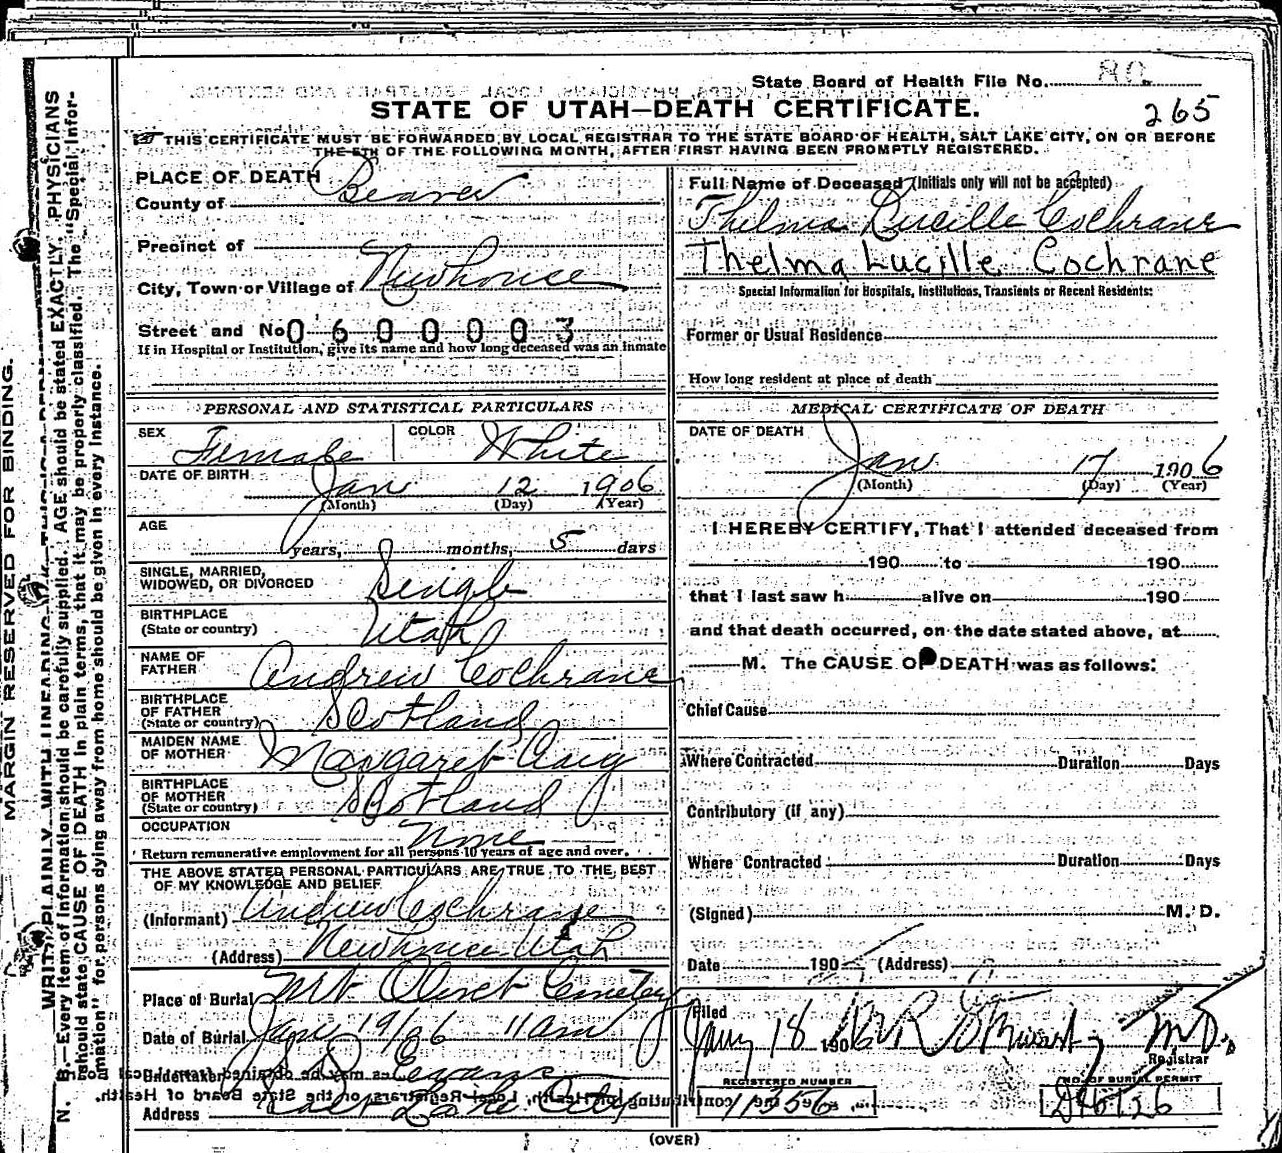 State Board of Health File No. 80
265
STATE OF UTAH—DEATH CERTIFICATE.
THIS CERTIFICATE MUST BE FORWARDED BY LOCAL REGISTRAR TO THE STATE BOARD OF HEALTH, SALT LAKE CITY, ON OR BEFORE
THE 5TH OF THE FOLLOWING MONTH, AFTER FIRST HAVING BEEN PROMPTLY REGISTERED.
PLACE OF DEATH
County of Beaver
Precinct of
City, Town or Village of Newhouse
Street and No. 0600003
If in Hospital or Institution, give its name and how long deceased was an inmate
Full Name of Deceased (Initials only will not be accepted)
Thelma Lucille Cochrane
Thelma Lucille Cochrane
Special Information for Hospitals, Institutions, Transients or Recent Residents:
Former or Usual Residence
How long resident at place of death
PERSONAL AND STATISTICAL PARTICULARS
SEX Female COLOR White
DATE OF BIRTH Jan 12 1906
(Month) (Day) (Year)
AGE
years, months, 5 days
SINGLE, MARRIED,
WIDOWED, OR DIVORCED Single
BIRTHPLACE
(State or country) Utah
NAME OF
FATHER Andrew Cochrane
BIRTHPLACE
OF FATHER
(State or country) Scotland
MAIDEN NAME
OF MOTHER Margaret Craig
BIRTHPLACE
OF MOTHER
(State or country) Scotland
OCCUPATION None
Return remunerative employment for all persons 10 years of age and over.
THE ABOVE STATED PERSONAL PARTICULARS ARE TRUE TO THE BEST
OF MY KNOWLEDGE AND BELIEF
(Informant) Andrew Cochrane
(Address) Newhouse Utah
Place of Burial Mt. Olivet Cemetery
Date of Burial Jan 19/06 11 am
Undertaker Evans
Address Salt Lake City
MEDICAL CERTIFICATE OF DEATH
DATE OF DEATH
Jan 17 1906
(Month) (Day) (Year)
I HEREBY CERTIFY, That I attended deceased from
190 to 190
that I last saw h alive on 190
and that death occurred, on the date stated above, at
M. The CAUSE OF DEATH was as follows:
Chief Cause
Where Contracted Duration Days
Contributory (if any)
Where Contracted Duration Days
(Signed) M. D.
Date 190 (Address)
Filed
Jany 18 1906 M.D.
Registrar
REGISTERED NUMBER
11356
NO. OF BURIAL PERMIT
(OVER)
MARGIN RESERVED FOR BINDING.
WRITE PLAINLY WITH UNFADING
N. B.—Every item of information should be carefully supplied. AGE should be stated EXACTLY. PHYSICIANS
should state CAUSE OF DEATH in plain terms, that it may be properly classified. The "Special Infor-
mation" for persons dying away from home should be given in every instance.